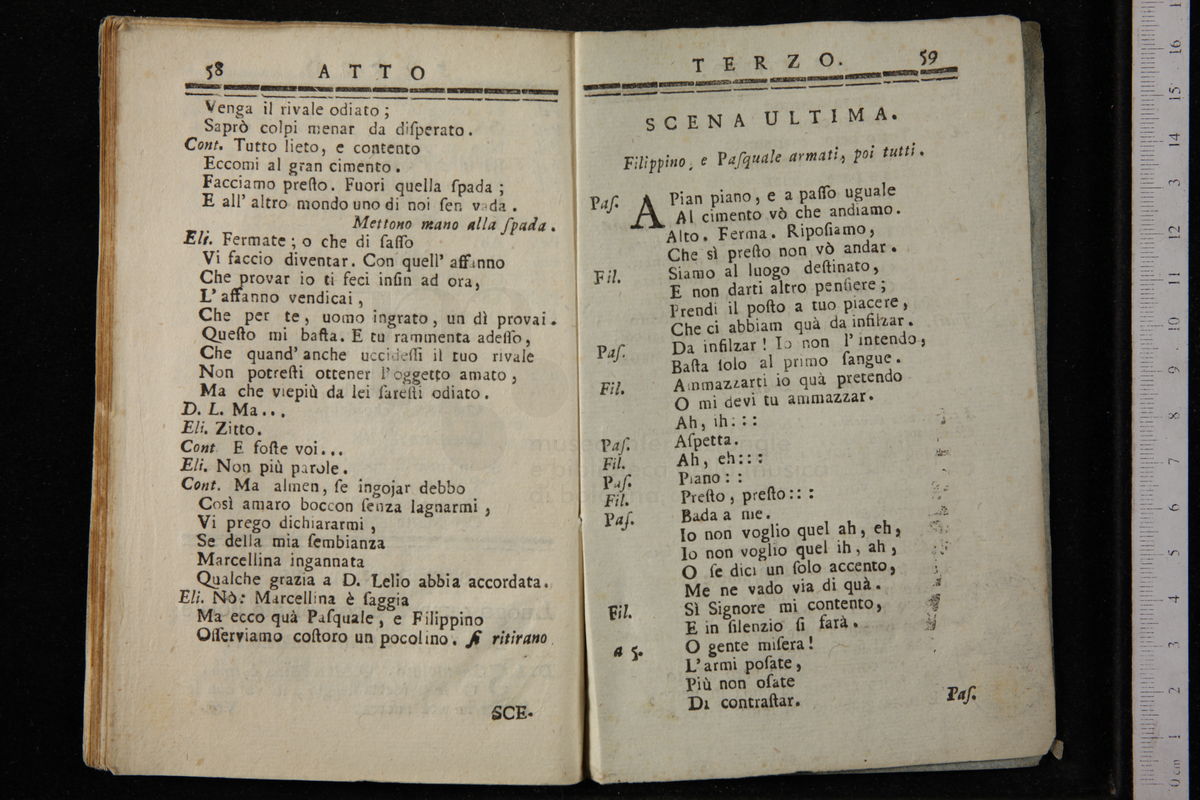 58 ATTO
Venga il rivale odiato;
Saprò colpi menar da diſperato.
Cont. Tutto lieto, e contento
Eccomi al gran cimento.
Facciamo preſto. Fuori quella ſpada;
E all' altro mondo uno di noi ſen vada.
Mettono mano alla ſpada.
Eli. Fermate; o che di ſaſſo
Vi faccio diventar. Con quell' affanno
Che provar io ti feci inſin ad ora,
L' affanno vendicai,
Che per te, uomo ingrato, un dì provai.
Queſto mi baſta. E tu rammenta adeſſo,
Che quand' anche uccideſſi il tuo rivale
Non potreſti ottener l'oggetto amato,
Ma che viepiù da lei ſareſti odiato.
D. L. Ma...
Eli. Zitto.
Cont. E foſte voi...
Eli. Non più parole.
Cont. Ma almen, ſe ingojar debbo
Così amaro boccon ſenza lagnarmi,
Vi prego dichiararmi,
Se della mia ſembianza
Marcellina ingannata
Qualche grazia a D. Lelio abbia accordata.
Eli. Nò: Marcellina è ſaggia
Ma ecco quà Paſquale, e Filippino
Oſſerviamo coſtoro un pocolino. ſi ritirano.
SCE-
TERZO. 59
SCENA ULTIMA.
Filippino, e Paſquale armati, poi tutti.
Paſ. A Pian piano, e a paſſo uguale
Al cimento vò che andiamo.
Alto. Ferma. Ripoſiamo,
Che sì preſto non vò andar.
Fil. Siamo al luogo deſtinato,
E non darti altro penſiere;
Prendi il poſto a tuo piacere,
Che ci abbiam quà da infilzar.
Paſ. Da infilzar! Io non l'intendo,
Baſta ſolo al primo ſangue.
Fil. Ammazzarti io quà pretendo
O mi devi tu ammazzar.
Ah, ih:::
Paſ. Aſpetta.
Fil. Ah, eh:::
Paſ. Piano::
Fil. Preſto, preſto:::
Paſ. Bada a me.
Io non voglio quel ah, eh,
Io non voglio quel ih, ah,
O ſe dici un ſolo accento,
Me ne vado via di quà.
Fil. Sì Signore mi contento,
E in ſilenzio ſi farà.
a 5. O gente miſera!
L'armi poſate,
Più non oſate
Di contraſtar.
Paſ.